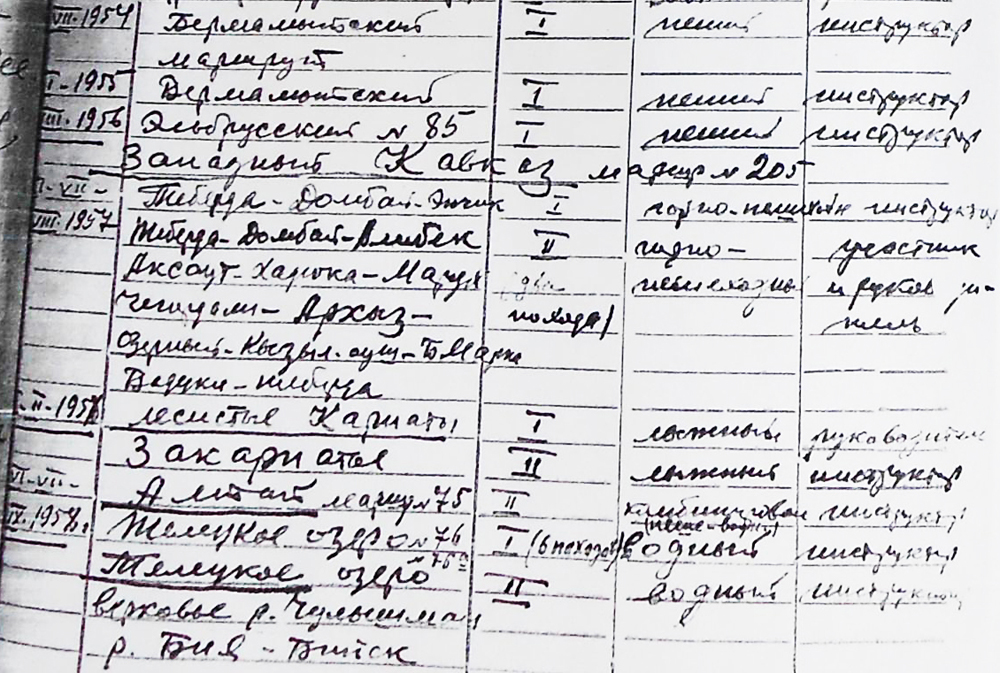 VII-1954 Бермамытский I пеший инструктор
маршрут
I-1955 Бермамытский I пеший инструктор
VIII-1956 Эльбрусский № 85 I пеший инструктор
Западный Кавказ маршр № 205
VII- Теберда-Домбай- I горно- инструктор
VIII-1957 Теберда-Домбай-Алибек II участник
Аксаут-Хадюка-Маруха (два и руково ди-
Архыз- похода) тель
Озерный-Кызыл-
теберда
II-1958 лесистые Карпаты I лыжный руководитель
Закарпатье II лыжный инструктор
VI-VII- Алтай маршр № 75 II комбинирован инструктор
(пеше-водный)
IX-1958г. Телецкое озеро № 76 I (6 походов) водный инструктор
Телецкое озеро 76а II водный инструктор
верховье р. Чулышман,
р. Бия - Бийск